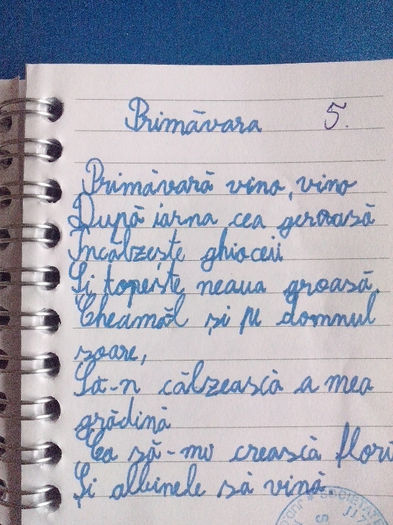 Primăvara 5.
Primăvară vino, vino
După iarna cea geroasă
Încălzește ghioceii
Și topește neaua groasă.
Cheamăl și pe domnul
soare,
Să-n călzească a mea
grădină
Ca să-mi crească flori
Și albinele să vină
SOCIETATE